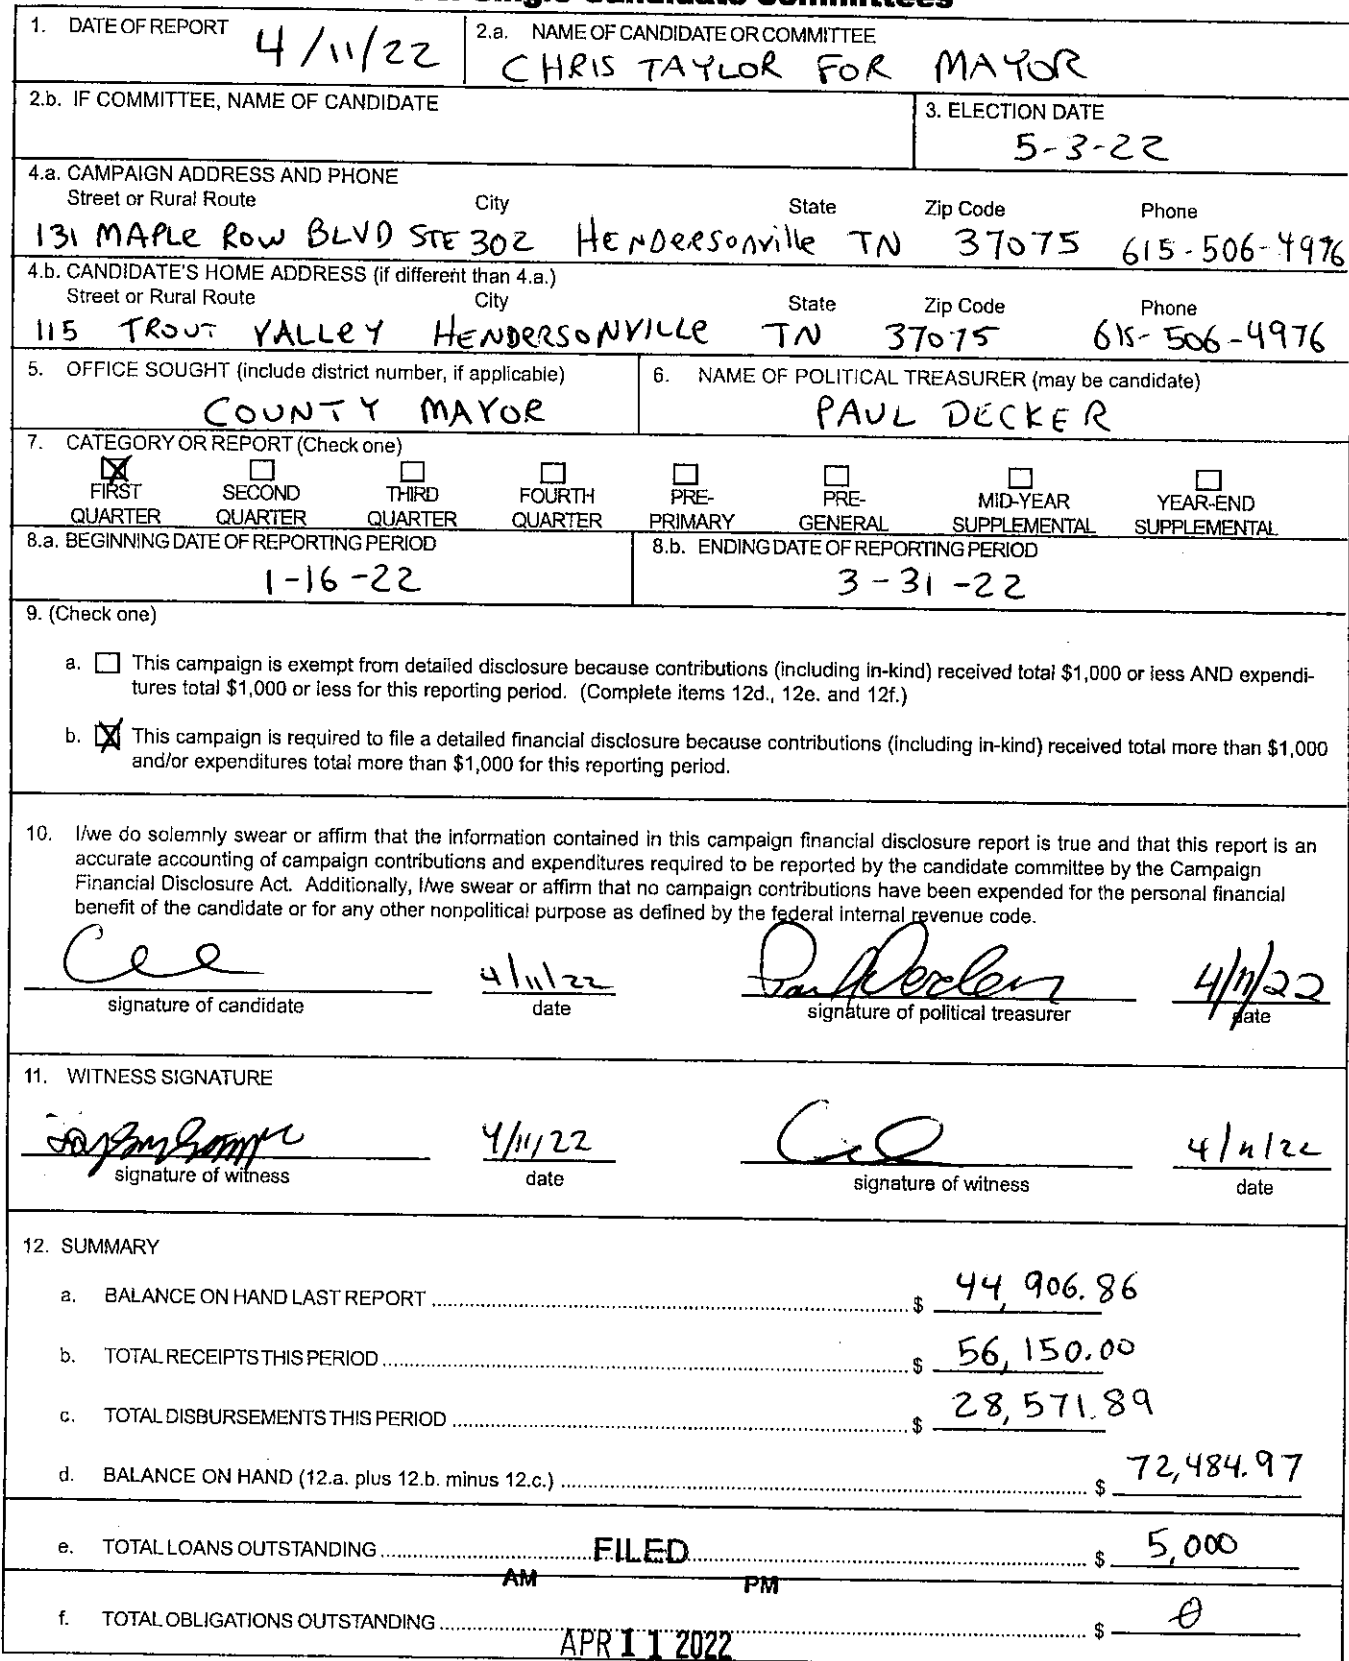 For Single Candidate Committees
1. DATE OF REPORT 4/11/22
2.a. NAME OF CANDIDATE OR COMMITTEE
CHRIS TAYLOR FOR MAYOR
2.b. IF COMMITTEE, NAME OF CANDIDATE
3. ELECTION DATE
5-3-22
4.a. CAMPAIGN ADDRESS AND PHONE
Street or Rural Route City State Zip Code Phone
131 MAPLE ROW BLVD STE 302 HENDERSONVILLE TN 37075 615-506-4976
4.b. CANDIDATE'S HOME ADDRESS (if different than 4.a.)
Street or Rural Route City State Zip Code Phone
115 TROUT VALLEY HENDERSONVILLE TN 37075 615-506-4976
5. OFFICE SOUGHT (include district number, if applicable)
COUNTY MAYOR
6. NAME OF POLITICAL TREASURER (may be candidate)
PAUL DECKER
7. CATEGORY OR REPORT (Check one)
☒ ☐ ☐ ☐ ☐ ☐ ☐ ☐
FIRST SECOND THIRD FOURTH PRE- PRE- MID-YEAR YEAR-END
QUARTER QUARTER QUARTER QUARTER PRIMARY GENERAL SUPPLEMENTAL SUPPLEMENTAL
8.a. BEGINNING DATE OF REPORTING PERIOD
1-16-22
8.b. ENDING DATE OF REPORTING PERIOD
3-31-22
9. (Check one)
a. ☐ This campaign is exempt from detailed disclosure because contributions (including in-kind) received total $1,000 or less AND expendi-
tures total $1,000 or less for this reporting period. (Complete items 12d., 12e. and 12f.)
b. ☒ This campaign is required to file a detailed financial disclosure because contributions (including in-kind) received total more than $1,000
and/or expenditures total more than $1,000 for this reporting period.
10. I/we do solemnly swear or affirm that the information contained in this campaign financial disclosure report is true and that this report is an
accurate accounting of campaign contributions and expenditures required to be reported by the candidate committee by the Campaign
Financial Disclosure Act. Additionally, I/we swear or affirm that no campaign contributions have been expended for the personal financial
benefit of the candidate or for any other nonpolitical purpose as defined by the federal internal revenue code.
4/11/22 4/11/22
signature of candidate date signature of political treasurer date
11. WITNESS SIGNATURE
4/11/22 4/11/22
signature of witness date signature of witness date
12. SUMMARY
a. BALANCE ON HAND LAST REPORT $ 44,906.86
b. TOTAL RECEIPTS THIS PERIOD $ 56,150.00
c. TOTAL DISBURSEMENTS THIS PERIOD $ 28,571.89
d. BALANCE ON HAND (12.a. plus 12.b. minus 12.c.) $ 72,484.97
e. TOTAL LOANS OUTSTANDING $ 5,000
FILED
AM PM
f. TOTAL OBLIGATIONS OUTSTANDING $ 0
APR 11 2022